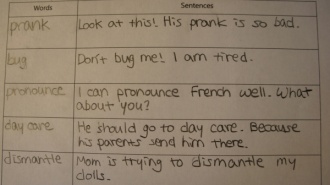 Words Sentences
prank Look at this! His prank is so bad.
bug Don't bug me! I am tired.
pronounce I can pronounce French well. What
about you?
day care He should go to day care. Because
his parents send him there.
dismantle Mom is trying to dismantle my
dolls.